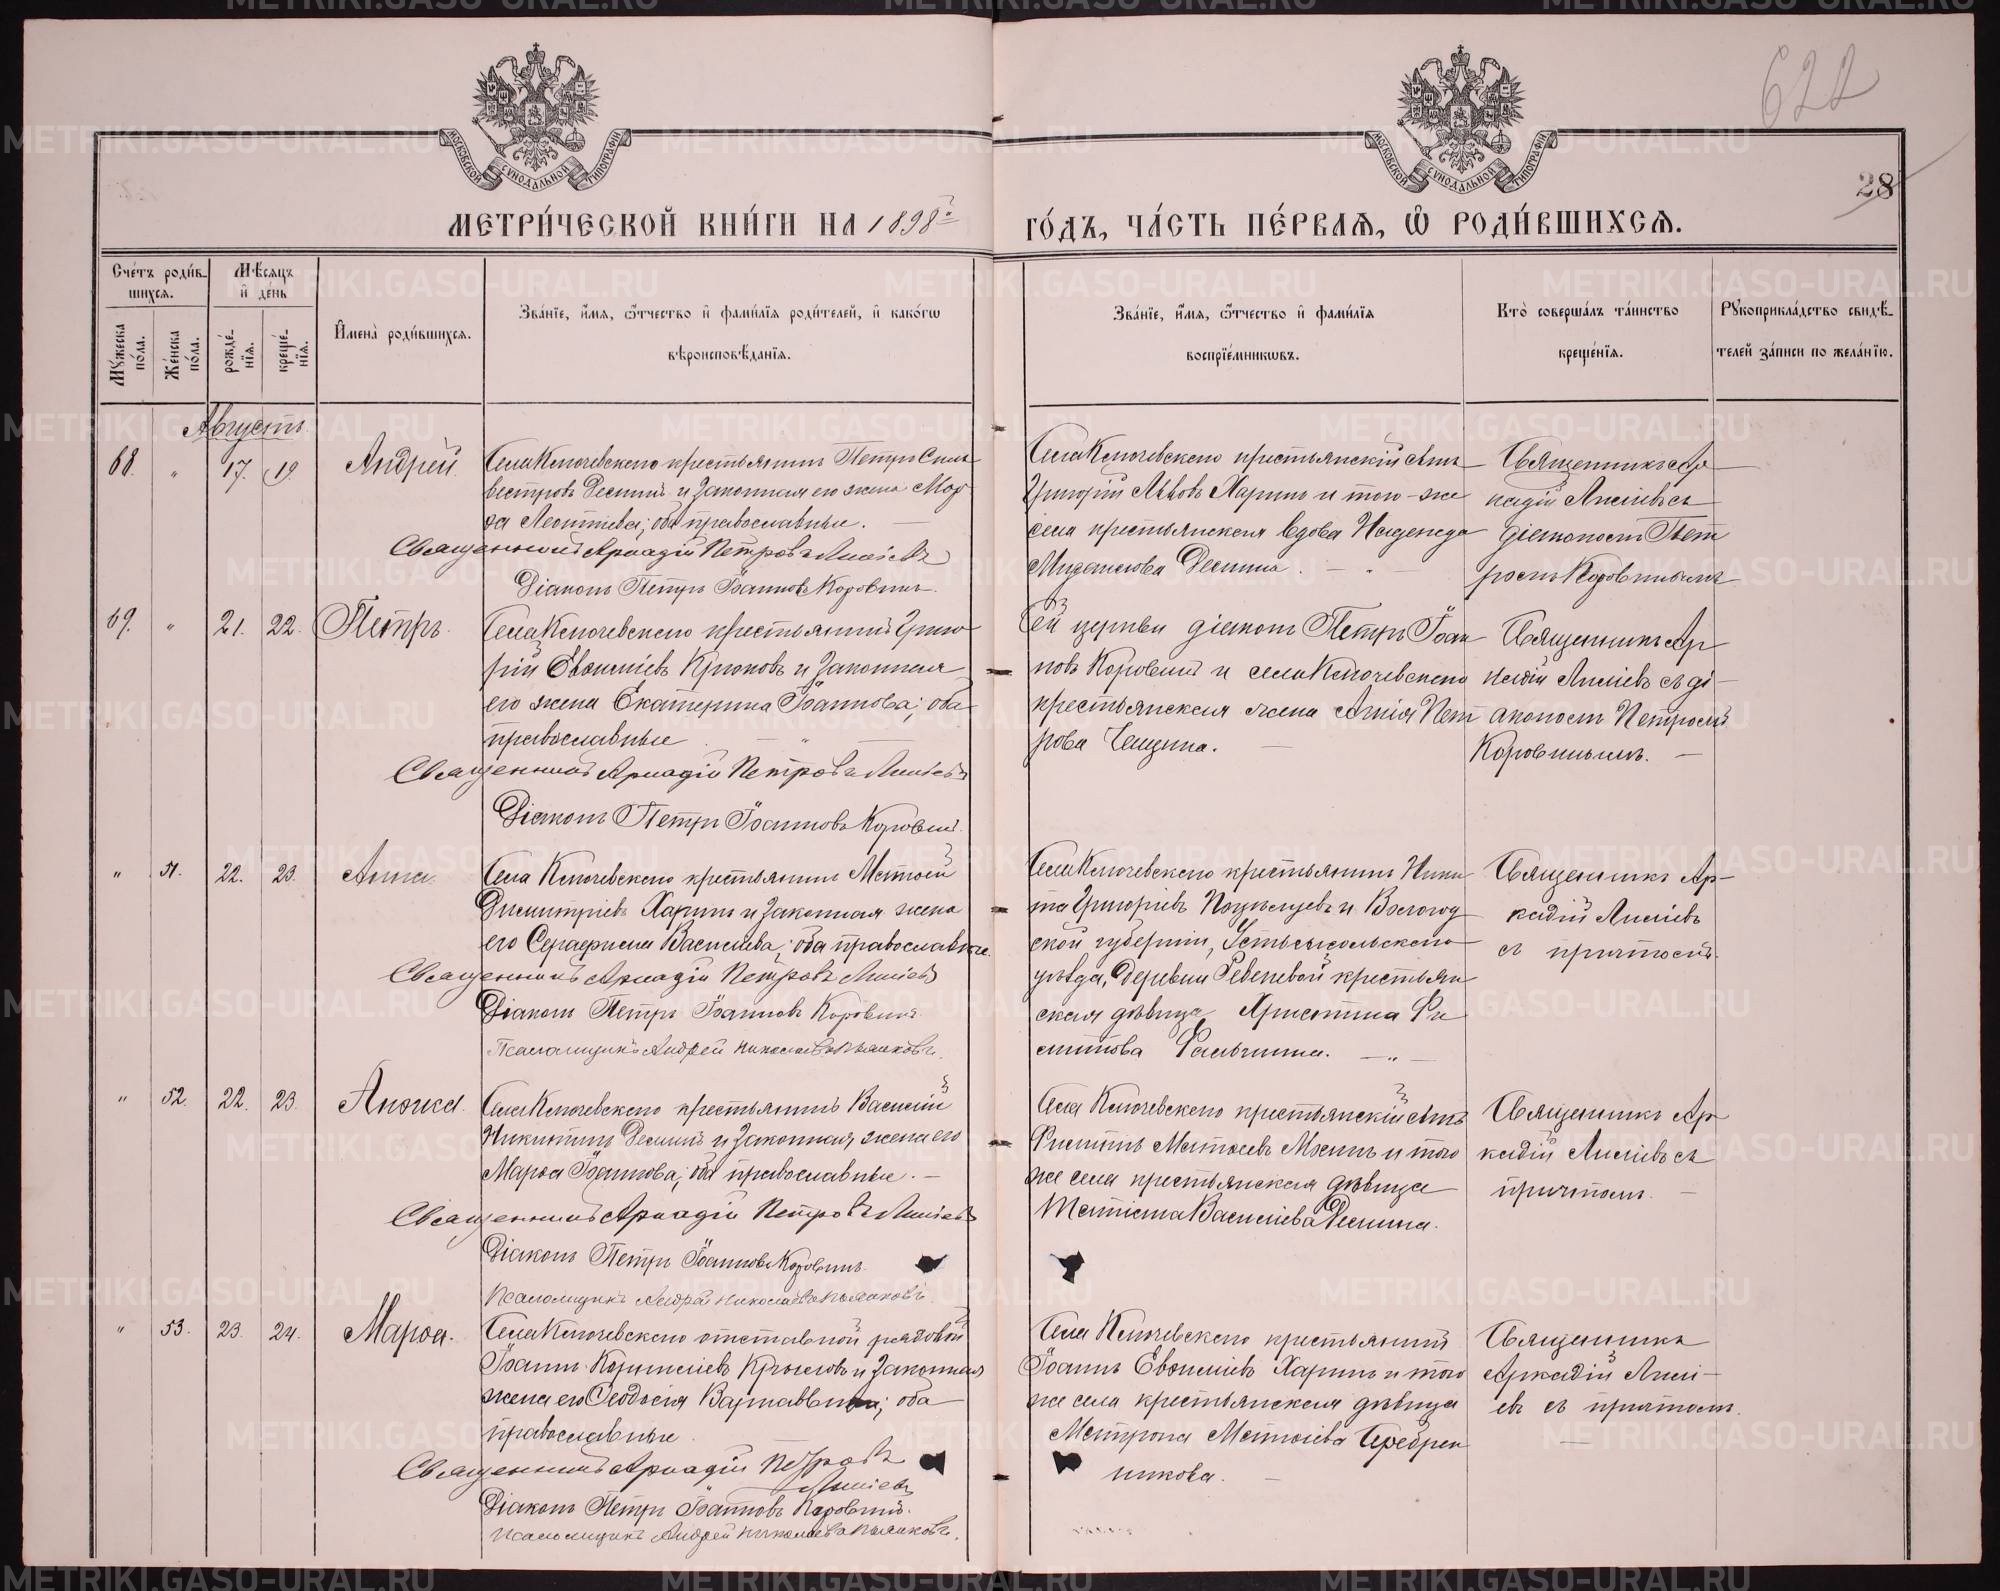 622
28
МОСКОВСКОЙ СѴНОДАЛЬНОЙ ТИПОГРАФІИ
МОСКОВСКОЙ СѴНОДАЛЬНОЙ ТИПОГРАФІИ
МЕТРИ́ЧЕСКОЙ КНИ́ГИ НА 1898й
ГО́ДЪ, ЧА́СТЬ ПЕ́РВАѦ, Ѡ҆ РОДИ́ВШИХСѦ.
Сче́тъ роди́в-
шихся.
Му́жеска по́ла.
Же́нска по́ла.
Мѣ́сяцъ
и҆ де́нь
рожде́-
нїя.
креще́-
нїя.
И҆мена̀ роди́вшихся.
Зва́нїе, и҆́мя, ѻ҆́тчество и҆ фами́лїя роди́телей, и҆ како́гѡ
вѣроисповѣ́данїя.
Зва́нїе, и҆́мя, ѻ҆́тчество и҆ фами́лїя
воспрїе́мникѡвъ.
Кто̀ соверша́лъ та́инство
креще́нїя.
Рꙋкоприкла́дство свидѣ́-
телей за́писи по жела́нїю.
Августъ
68. " 17. 19. Андрей.
Села Ключевскаго крестьянинъ Петръ Силь-
вестровъ Деминъ и законная его жена Мар
ѳа Леонтіева; оба православные.
Священникъ Аркадій Петровъ Лисіевъ
Діаконъ Петръ Іоанновъ Коровинъ.
Села Ключевскаго крестьянскій сынъ
Григорій Львовъ Харинъ и того-же
села крестьянская вдова Надежда
Деминa.
Священникъ Ар-
кадій Лисіевъ съ
діакономъ Пет
ромъ Коровинымъ
69. " 21. 22. Петръ.
Села Ключевскаго крестьянинъ Григо
рій Евѳиміевъ Крюковъ и законная
его жена Екатерина Іоаннова; оба
православные
Священникъ Аркадій Петровъ Лисіевъ
Діаконъ Петръ Іоанновъ Коровинъ.
Сей церкви діаконъ Петръ Іоан
новъ Коровинъ и села Ключевскаго
крестьянская жена Агнія Пет
рова
Священникъ Ар
кадій Лисіевъ съ ді-
акономъ Петромъ
Коровинымъ.
" 51. 22. 23. Анна.
Села Ключевскаго крестьянинъ Матѳей
Димитріевъ Харинъ и законная жена
его Серафима Васильева; оба православные.
Священникъ Аркадій Петровъ Лисіевъ
Діаконъ Петръ Іоанновъ Коровинъ.
Псаломщикъ Андрей Николаевъ
Села Ключевскаго крестьянинъ Ники
та Григорьевъ и Вологод
ской губерніи, Устьсысольскаго
уѣзда, деревни крестьян
ская дѣвица Христина Фи
липпова
Священникъ Ар-
кадій Лисіевъ
съ причтомъ.
" 52. 22. 23. Анѳиса.
Села Ключевскаго крестьянинъ Василій
Никитинъ Деминъ и законная жена его
Марѳа Іоаннова; оба православные.
Священникъ Аркадій Петровъ Лисіевъ
Діаконъ Петръ Іоанновъ Коровинъ.
Псаломщикъ Андрей Николаевъ
Села Ключевскаго крестьянскій сынъ
Филиппъ Матѳеевъ и того
же села крестьянская дѣвица
Татіана Васильева Демина.
Священникъ Ар
кадій Лисіевъ съ
причтомъ.
" 53. 23. 24. Марѳа.
Села Ключевскаго отставной рядовой
Іоаннъ Корниліевъ Крыловъ и законная
жена его Ѳеодосія оба
православные.
Священникъ Аркадій Петровъ
Лисіевъ
Діаконъ Петръ Іоанновъ Коровинъ.
Псаломщикъ Андрей Николаевъ
Села Ключевскаго крестьянинъ
Іоаннъ Евѳиміевъ Харинъ и того
же села крестьянская дѣвица
Матрона Матѳеева Серебрен
никова.
Священникъ
Аркадій Лисі-
евъ съ причтомъ.
METRIKI.GASO-URAL.RU